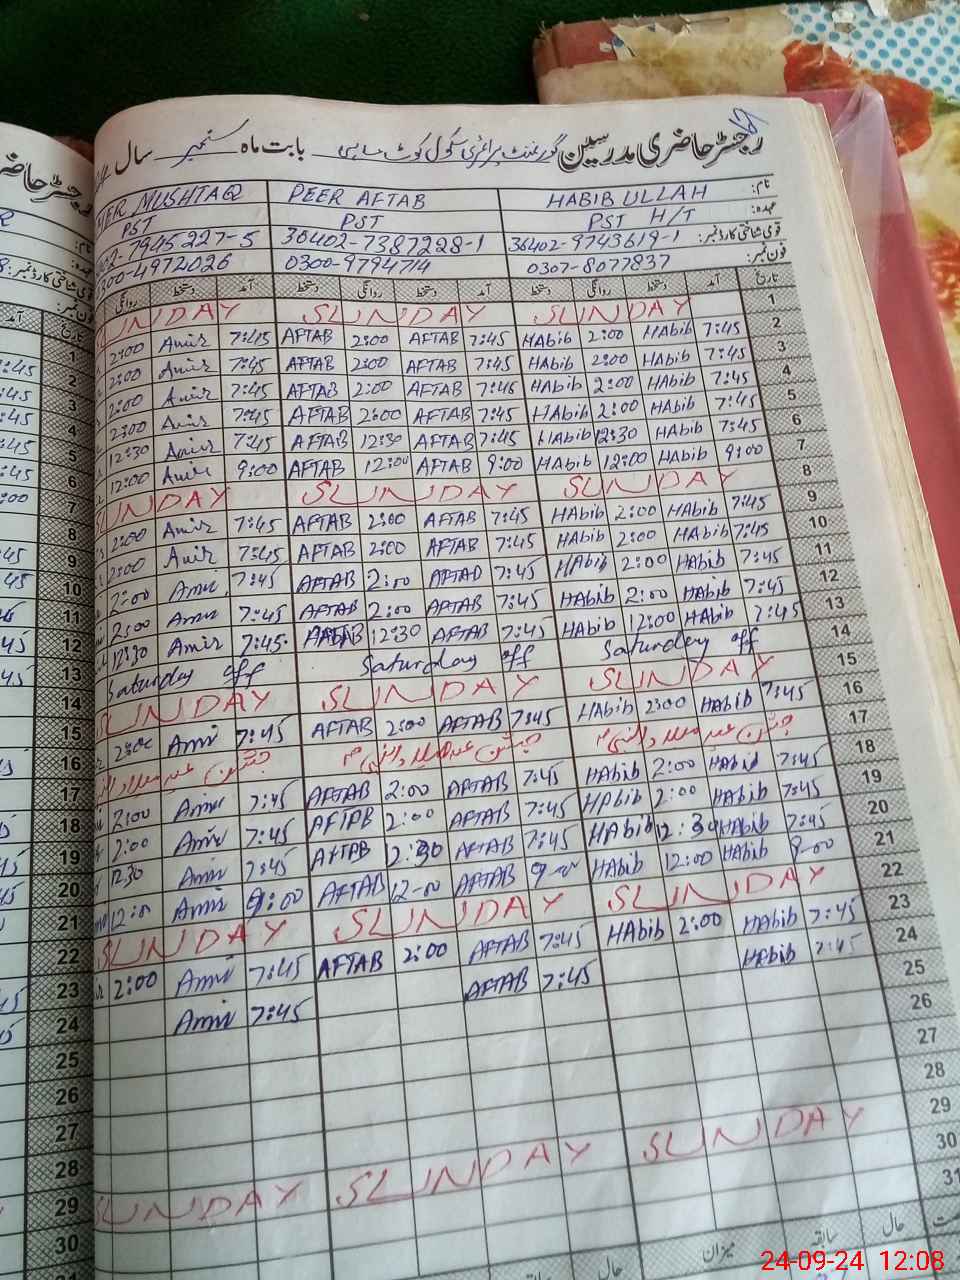 رجسٹر حاضری مدرسین گورنمنٹ پرائمری سکول کوٹ بابت ماہ ستمبر سال
نام: HABIB ULLAH PEER AFTAB MUSHTAQ
عہدہ: PST H/T PST PST
قومی شناختی کارڈ نمبر: 36402-9743619-1 36402-7387228-1 7945227-5
فون نمبر: 0307-8077837 0300-9794714 0300-4972026
تاریخ آمد دستخط روانگی دستخط آمد دستخط روانگی دستخط آمد دستخط روانگی
1 SUNDAY SUNDAY SUNDAY
2 7:45 HAbib 2:00 HAbib 7:45 AFTAB 2:00 AFTAB 7:45 Amir 2:00
3 7:45 HAbib 2:00 HAbib 7:45 AFTAB 2:00 AFTAB 7:45 Amir 2:00
4 7:45 HAbib 2:00 HAbib 7:46 AFTAB 2:00 AFTAB 7:45 Amir 2:00
5 7:45 HAbib 2:00 HAbib 7:45 AFTAB 2:00 AFTAB 7:45 Amir 2:00
6 7:45 HAbib 12:30 HAbib 7:45 AFTAB 12:30 AFTAB 7:45 Amir 12:30
7 9:00 HAbib 12:00 HAbib 9:00 AFTAB 12:00 AFTAB 9:00 Amir 12:00
8 SUNDAY SUNDAY SUNDAY
9 7:45 HAbib 2:00 HAbib 7:45 AFTAB 2:00 AFTAB 7:45 Amir 2:00
10 7:45 HAbib 2:00 HAbib 7:45 AFTAB 2:00 AFTAB 7:45 Amir 2:00
11 7:45 HAbib 2:00 HAbib 7:45 AFTAB 2:00 AFTAB 7:45 Amir 2:00
12 7:45 HAbib 2:00 HAbib 7:45 AFTAB 2:00 AFTAB 7:45 Amir 2:00
13 7:45 HAbib 12:00 HAbib 7:45 AFTAB 12:30 AFTAB 7:45 Amir 12:30
14 Saturday off Saturday off Saturday off
15 SUNDAY SUNDAY SUNDAY
16 7:45 HAbib 2:00 HAbib 7:45 AFTAB 2:00 AFTAB 7:45 Amir 2:00
17 جشن عید میلاد النبی جشن عید میلاد النبی جشن عید میلاد النبی
18 7:45 HAbib 2:00 HAbib 7:45 AFTAB 2:00 AFTAB 7:45 Amir 2:00
19 7:45 HAbib 2:00 HAbib 7:45 AFTAB 2:00 AFTAB 7:45 Amir 2:00
20 7:45 HAbib 12:30 HAbib 7:45 AFTAB 12:30 AFTAB 7:45 Amir 12:30
21 9-00 HAbib 12:00 HAbib 9-00 AFTAB 12-00 AFTAB 9:00 Amir 12:00
22 SUNDAY SUNDAY SUNDAY
23 7:45 HAbib 2:00 HAbib 7:45 AFTAB 2:00 AFTAB 7:45 Amir 2:00
24 7:45 HAbib 7:45 AFTAB 7:45 Amir
25
26
27
28
29 SUNDAY SUNDAY SUNDAY
30
31
حال سابقہ میزان حال سابقہ
24-09-24 12:08